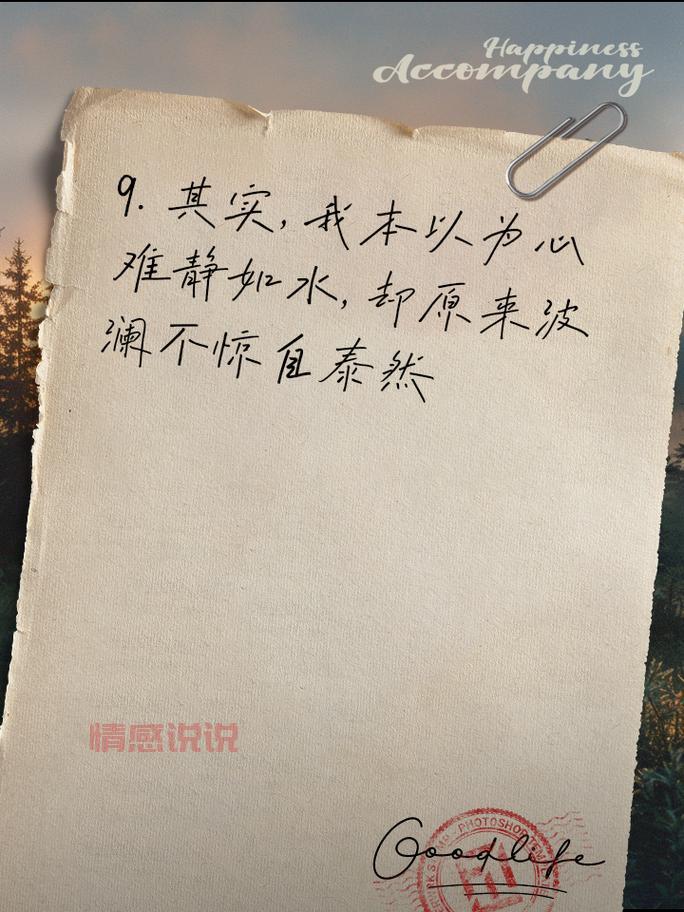 Happiness
Accompany
9. 其实,我本以为心
难静如水,却原来波
澜不惊自泰然
情感说说
PHOTOSHOP
Goodlife